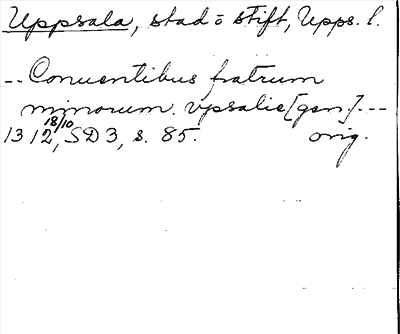 Uppsala, stad o stift, Upps. l.
-- Conuentibus fratrum
minorum. vpsalie [gen.] ---
1312 18/10, SD 3, s. 85. orig.